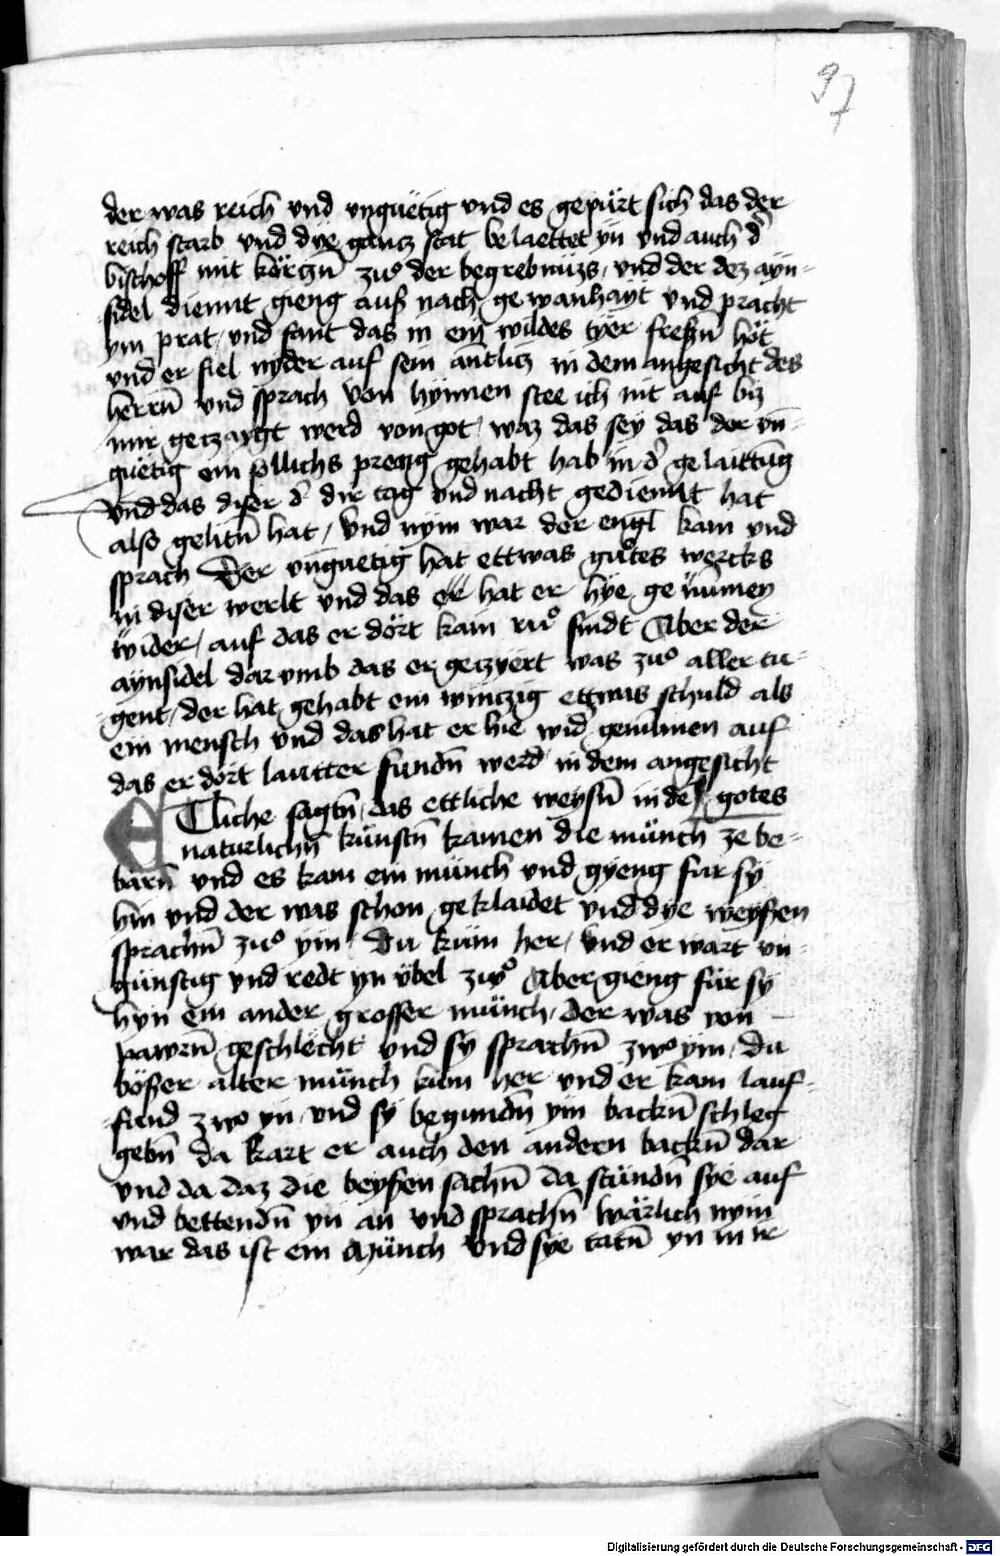 97
der was reich vnd vnguëtig vnd es gepürt sich das der
reich starb vnd dye gantz stat belaettet yn vnd auch d̄
bischoff mit körczn̄ zuͦ der begrebnüzs / vnd der dez ayn=
sidel diennt gieng auß nach gewanhayt vnd pracht
ym prat / vnd fant das in ein wildes tyer freßn̄ höt
vnd er fiel nyder auf sein antlitz in dem angesicht des
herrn̄ vnd sprach von hynnen stee ich nit auf biz
mir geczaygt werd von got / waz das sey das der vn̄=
guëtig ein söllichs preng gehabt hab in d̄ gelaittu̅g
vnd das diser d̄ dir tag vnd nacht gediennt hat
also gelitn̄ hat / vnd nym war der engl kam vnd
sprach Der vnguetig hat ettwas guͦtes wercks
in diser werlt vnd das hat er hye genu̅men
wider / auf das er dört kain ruͦ findt Aber der
aynsidel darvmb das er geczyert was zuͦ aller tu=
gent / der hat gehabt ein wintzig ettwas schuld als
ein mensch vnd das hat er hie wid̄ genu̅men auf
das er dort lautter fundn̄ werd in dem angesicht
gotes
ETliche sagtn̄ das ettliche weysn̄ in de
naturlichn̄ künstn̄ kamen die münch ze be=
bärn̄ vnd es kam ein münch vnd gyeng für sy
hin vnd der was schon geklaidet vnd dye weyßen
sprachn̄ zuͦ ym / du küm her / vnd er wart vn=
günstig vnd redt yn übel zuͦ Aber gieng für sy
hyn ein ander grosser münch / der was von
pawrn̄ geschlächt vnd sy sprachn̄ zwo ym / du
bößer alter münch kum her vnd er kam lauf=
fend zwo yn / vnd sy begundn̄ ym backn̄ schleg
gebn̄ da kart er auch den andern backn̄ dar
vnd da daz die beyßen sachn̄ da stündn̄ sye auf
vnd bettendn̄ yn an vnd sprachn̄ wärlich nym
war das ist ein Münch vnd sye tatn̄ yn in ir
Digitalisierung gefördert durch die Deutsche Forschungsgemeinschaft - DFG